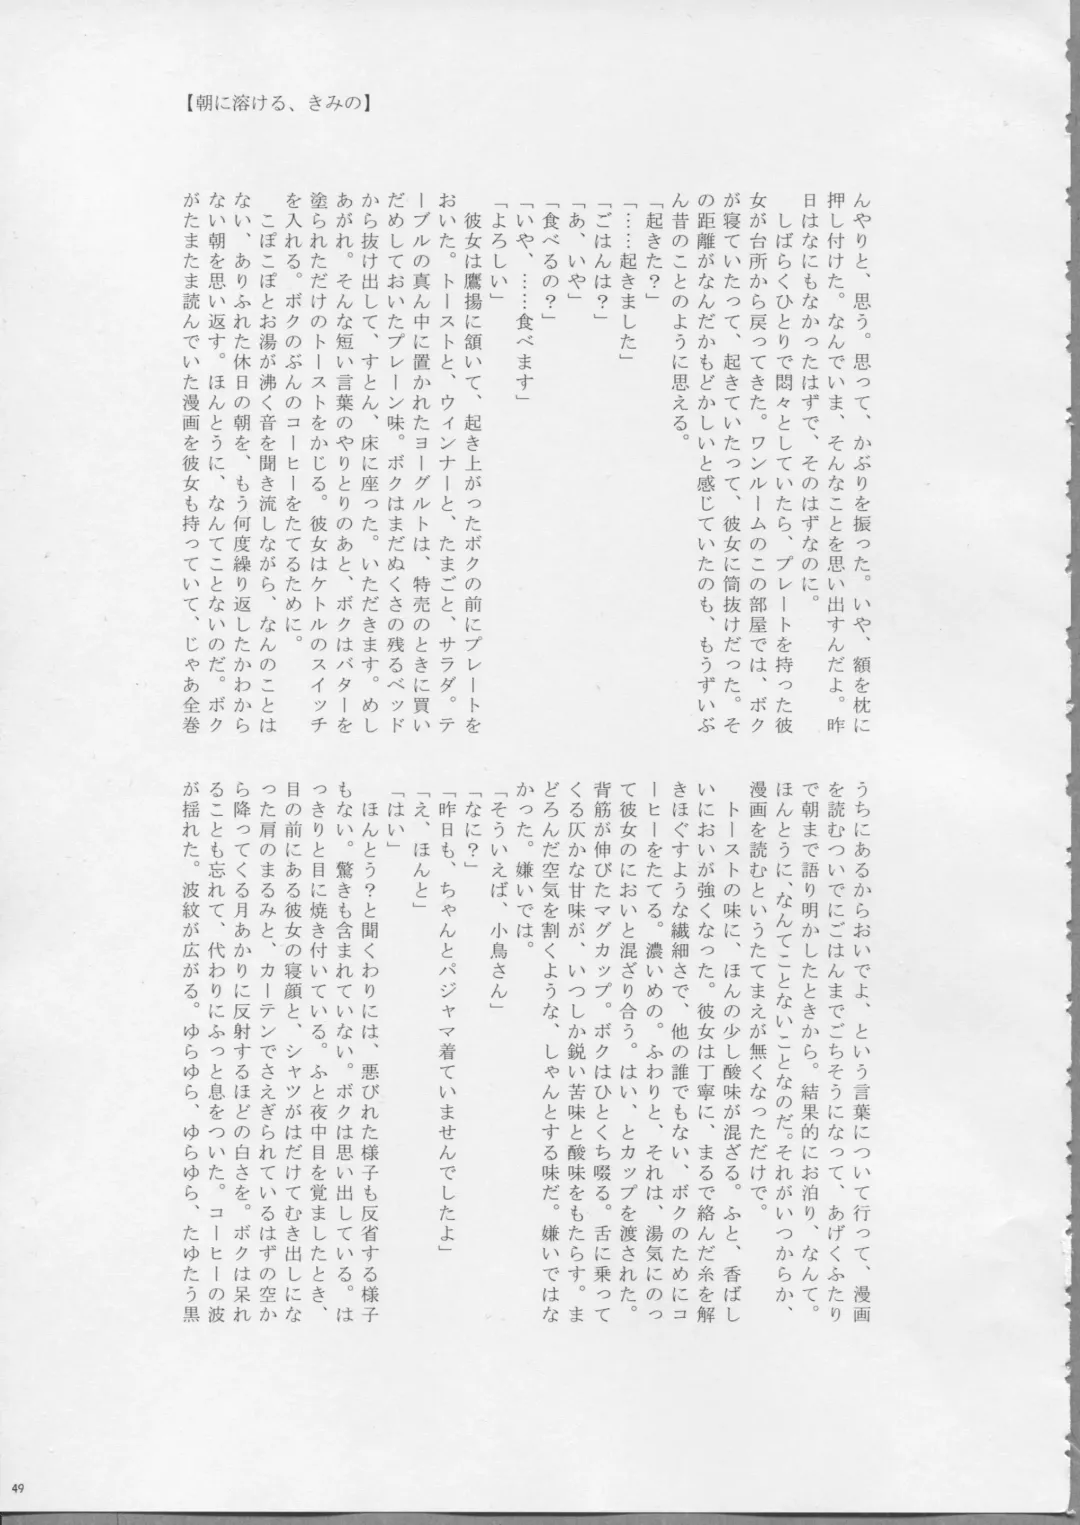 【朝に溶ける、きみの】
んやりと、思う。思って、かぶりを振った。いや、額を枕に
押し付けた。なんでいま、そんなことを思い出すんだよ。昨
日はなにもなかったはずで、そのはずなのに。
しばらくひとりで悶々としていたら、プレートを持った彼
女が台所から戻ってきた。ワンルームのこの部屋では、ボク
が寝ていたって、起きていたって、彼女に筒抜けだった。そ
の距離がなんだかもどかしいと感じていたのも、もうずいぶ
ん昔のことのように思える。
「起きた?」
「……起きました」
「ごはんは?」
「あ、いや」
「食べるの?」
「いや、……食べます」
「よろしい」
彼女は鷹揚に頷いて、起き上がったボクの前にプレートを
おいた。トーストと、ウィンナーと、たまごと、サラダ。テ
ーブルの真ん中に置かれたヨーグルトは、特売のときに買い
だめしておいたプレーン味。ボクはまだぬくさの残るベッド
から抜け出して、すとん、床に座った。いただきます。めし
あがれ。そんな短い言葉のやりとりのあと、ボクはバターを
塗られただけのトーストをかじる。彼女はケトルのスイッチ
を入れる。ボクのぶんのコーヒーをたてるために。
こぽこぽとお湯が沸く音を聞き流しながら、なんのことは
ない、ありふれた休日の朝を、もう何度繰り返したかわから
ない朝を思い返す。ほんとうに、なんてことないのだ。ボク
がたまたま読んでいた漫画を彼女も持っていて、じゃあ全巻
うちにあるからおいでよ、という言葉について行って、漫画
を読むついでにごはんまでごちそうになって、あげくふたり
で朝まで語り明かしたときから。結果的にお泊り、なんて。
ほんとうに、なんてことないことなのだ。それがいつからか、
漫画を読むというたてまえが無くなっただけで。
トーストの味に、ほんの少し酸味が混ざる。ふと、香ばし
いにおいが強くなった。彼女は丁寧に、まるで絡んだ糸を解
きほぐすような繊細さで、他の誰でもない、ボクのためにコ
ーヒーをたてる。濃いめの。ふわりと、それは、湯気にのっ
て彼女のにおいと混ざり合う。はい、とカップを渡された。
背筋が伸びたマグカップ。ボクはひとくち啜る。舌に乗って
くる仄かな甘味が、いつしか鋭い苦味と酸味をもたらす。ま
どろんだ空気を割くような、しゃんとする味だ。嫌いではな
かった。嫌いでは。
「そういえば、小鳥さん」
「なに?」
「昨日も、ちゃんとパジャマ着ていませんでしたよ」
「え、ほんと」
「はい」
ほんとう?と聞くわりには、悪びれた様子も反省する様子
もない。驚きも含まれていない。ボクは思い出している。は
っきりと目に焼き付いている。ふと夜中目を覚ましたとき、
目の前にある彼女の寝顔と、シャツがはだけてむき出しにな
った肩のまるみと、カーテンでさえぎられているはずの空か
ら降ってくる月あかりに反射するほどの白さを。ボクは呆れ
ることも忘れて、代わりにふっと息をついた。コーヒーの波
が揺れた。波紋が広がる。ゆらゆら、ゆらゆら、たゆたう黒
49